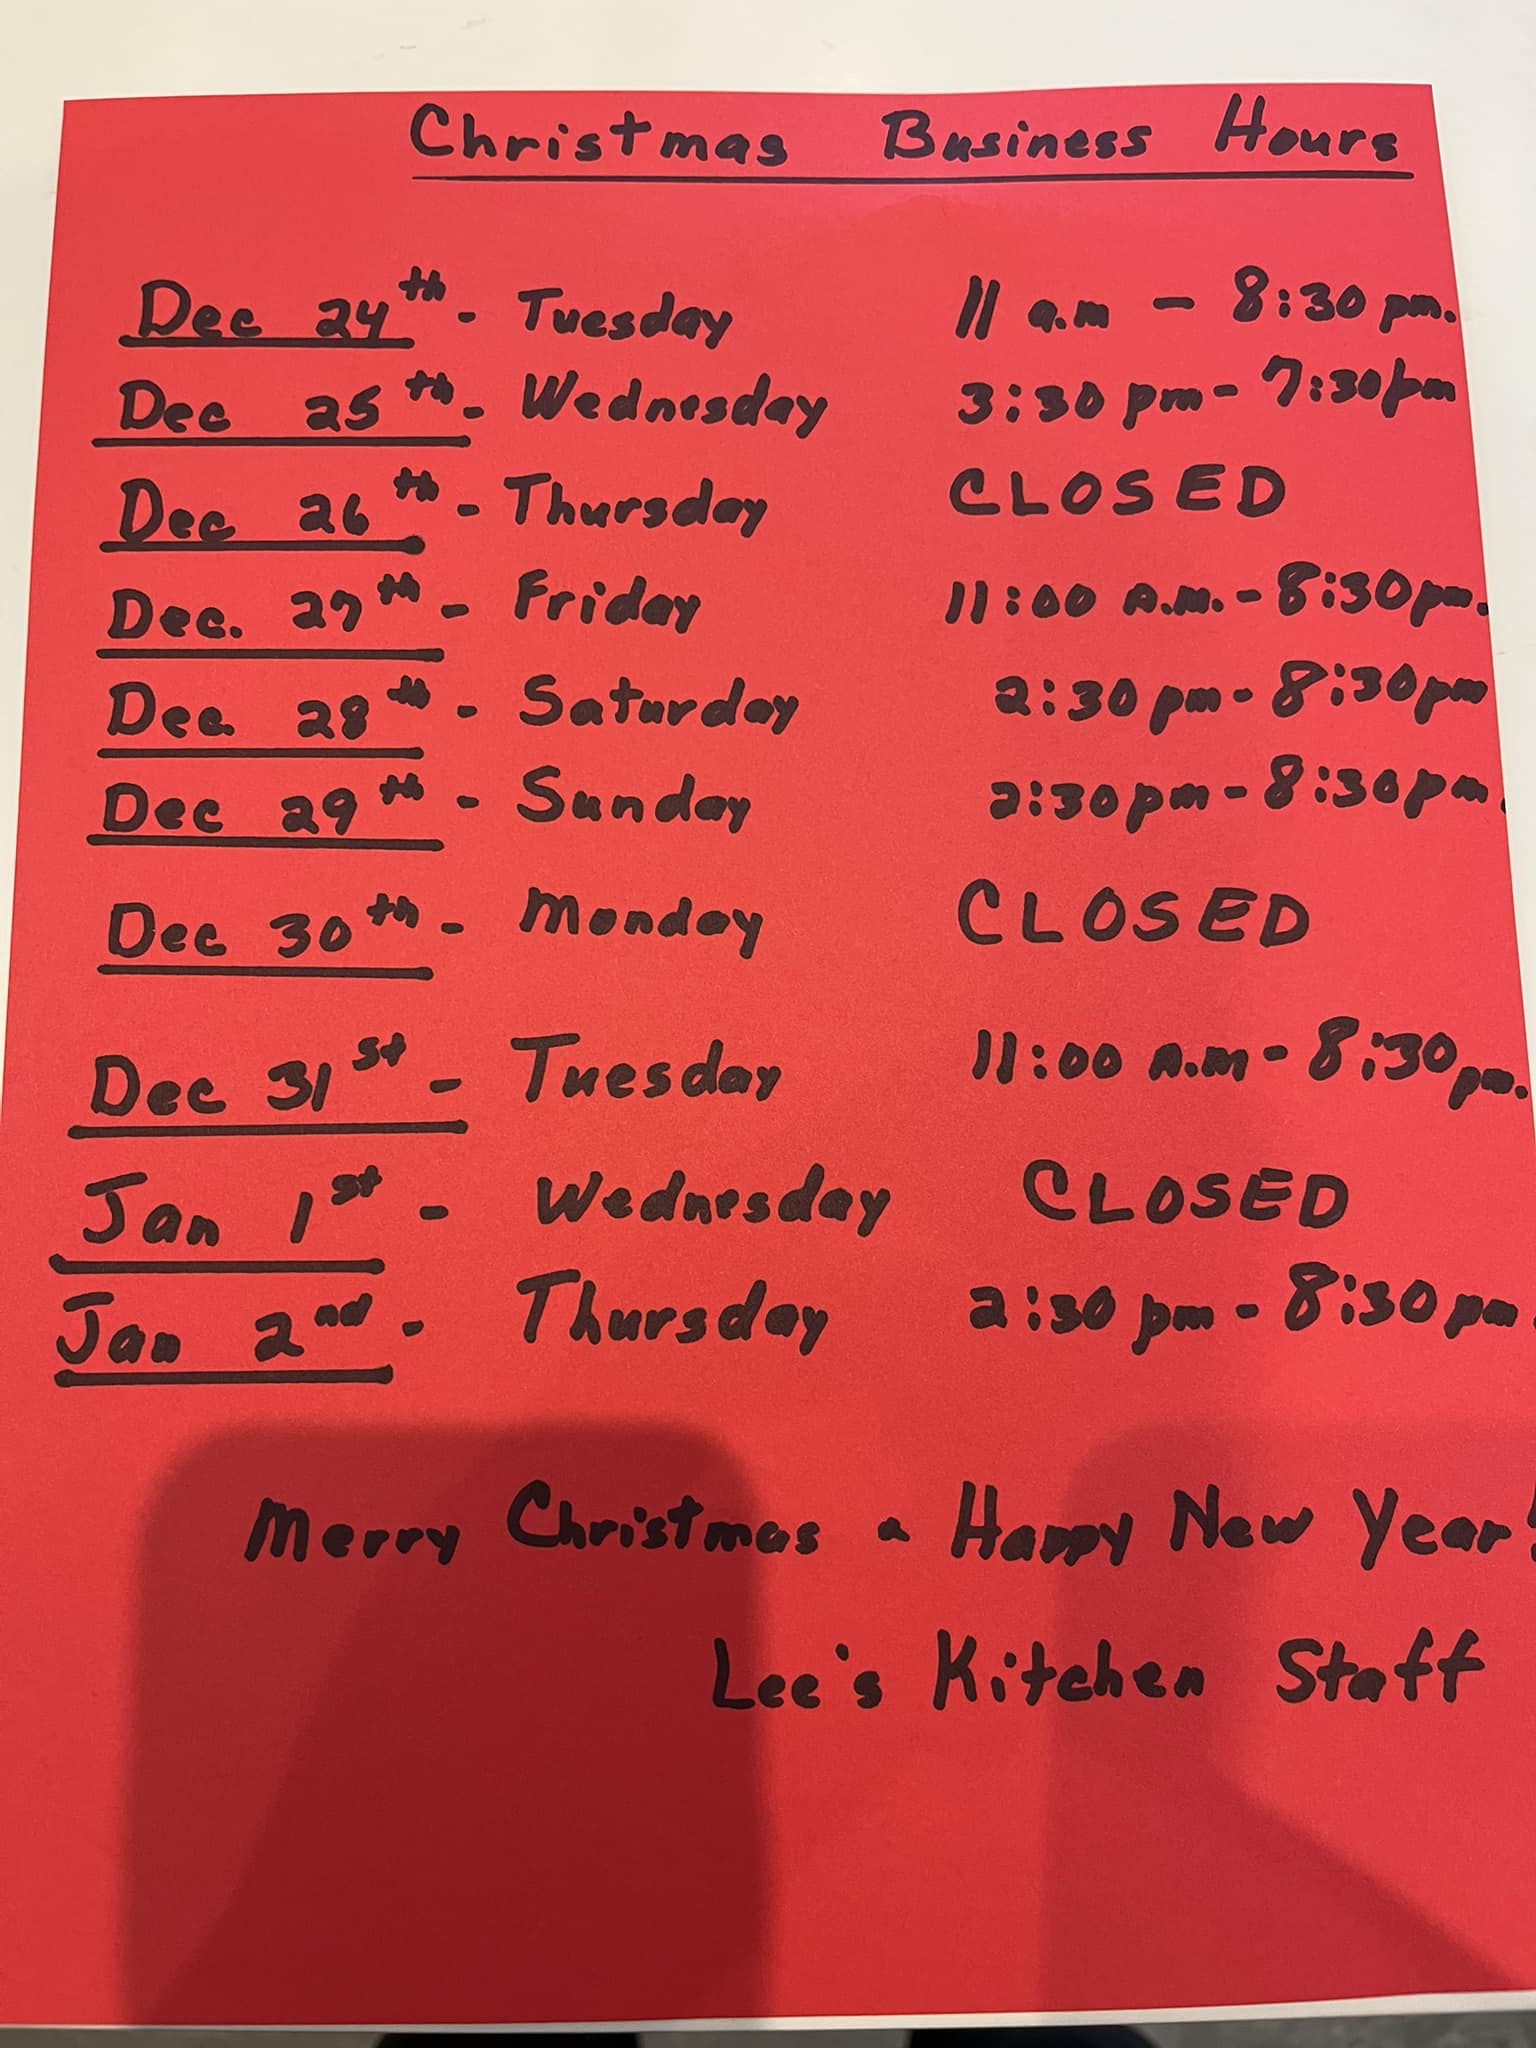 Christmas Business Hours
Dec 24th - Tuesday 11 a.m - 8:30 pm.
Dec 25th - Wednesday 3:30 pm - 7:30pm
Dec 26th - Thursday CLOSED
Dec. 27th - Friday 11:00 A.M. - 8:30pm.
Dec. 28th - Saturday 2:30 pm - 8:30pm
Dec 29th - Sunday 2:30pm - 8:30pm.
Dec 30th - Monday CLOSED
Dec 31st - Tuesday 11:00 A.M - 8:30pm.
Jan 1st - Wednesday CLOSED
Jan 2nd - Thursday 2:30 pm - 8:30pm.
Merry Christmas & Happy New Year!
Lee's Kitchen Staff